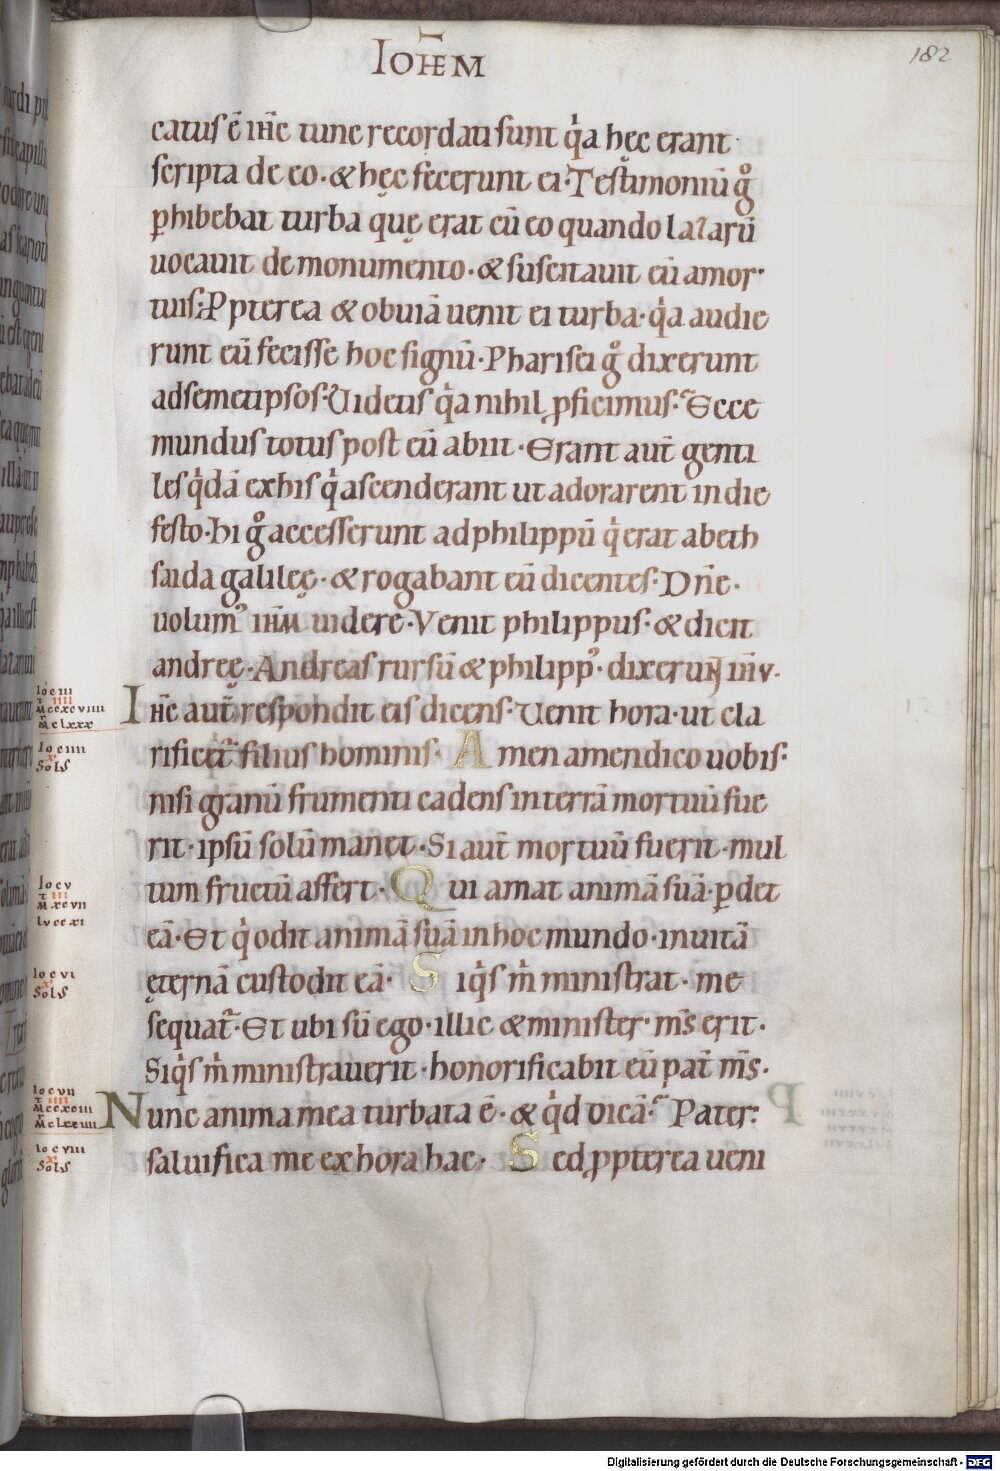 IOHEM
182
catus ē ihc tunc recordati sunt qͥa hęc erant
scripta de eo · & hęc fecerunt ei · Testimoniū gͦ
ꝑhibebat turba quę erat cū eo quando lazarū
uocauit de monumento · & suscitauit eū amor·
tuis; Ppterea & obuiā uenit ei turba · qͥa audie
runt eū fecisse hoc signū · Pharisei gͦ dixerunt
adsemetipsos· Uidetis qͥa nihil ꝓficimus· Ecce
mundus totus post eū abiit · Erant aut̄ genti
les qͥdā exhis qͥ ascenderant ut adorarent in die
festo · hi gͦ accesserunt ad philippū qͥ erat abeth
saida galileę · & rogabant eū dicentes · Dn̄e ·
uolumꝰ ihm uidere · Venit philippus · & dicit
andreę · Andreas rursū & philippꝰ · dixerunt ihv ·
Ihc aut̄ respondit eis dicens · Uenit hora · ut cla
rificet̄ filius hominis · Amen amen dico uobis ·
nisi granū frumenti cadens in terrā mortuū fue
rit · ipsū solū manet · Si aut̄ mortuū fuerit · mul
tum fructū affert · Qui amat animā suā · ꝑdet
eā · Et qͥ odit animā suā in hoc mundo · inuitā
ęternā custodit eā · Siqͥs mͥ ministrat · me
sequat̄ · Et ubi sū ego · illic & minister · m̄s erit ·
Siqͥs mͥ ministrauerit · honorificabit eū pat̄ m̄s ·
Nunc anima mea turbata ē · & qͥd dicā · Pater:
saluifica me ex hora hac · Sed ꝓpterea ueni
Io c iii
t iiii
M ccxcviiii
M clxxx
Io c iiii
x
Sols
Io c v
t iii
M xcvii
Lv ccxi
Io c vi
x
Sols
Io c vii
t iiii
M ccxciii
M clxxiiii
Io c viii
x
Sols
Digitalisierung gefördert durch die Deutsche Forschungsgemeinschaft - DFG